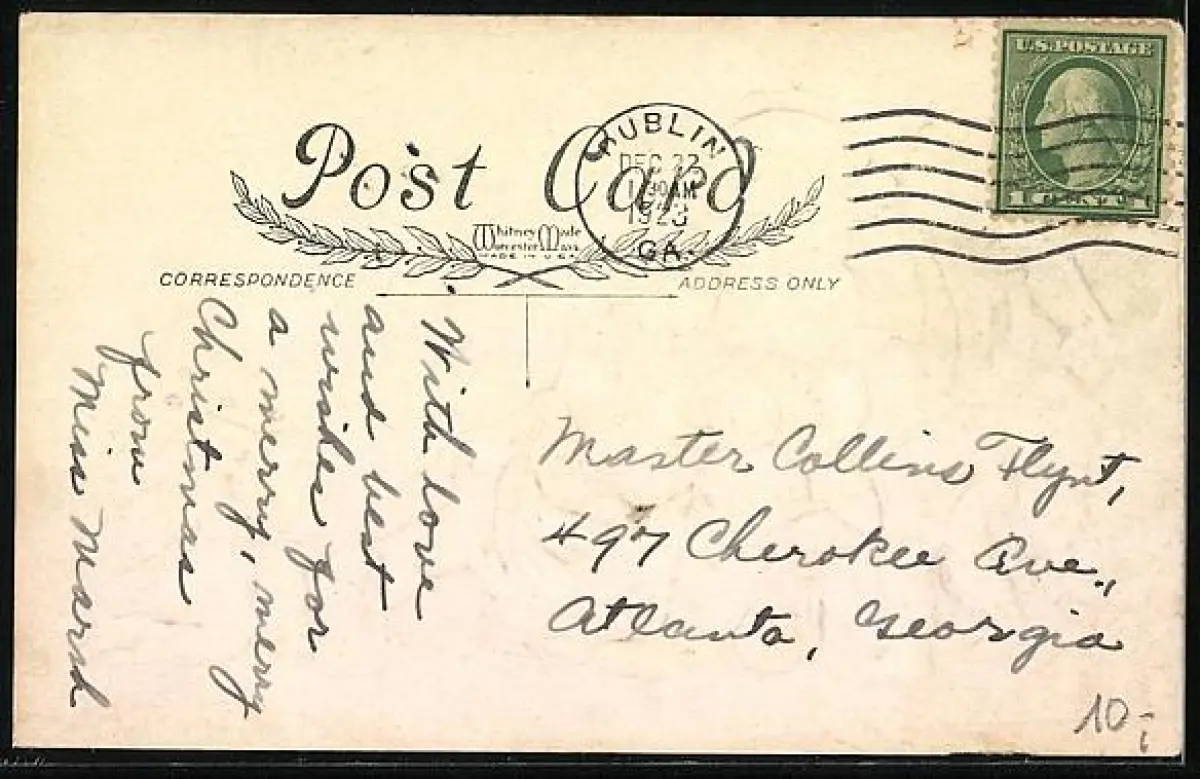 U.S. POSTAGE
Post Card
DUBLIN
DEC 22
GA.
Whitney Made
Worcester Mass
MADE IN U.S.A.
CORRESPONDENCE
ADDRESS ONLY
With love
and best
wishes for
a merry, merry
Christmas
from
Miss
Master Collins Flynt,
497 Cherokee Ave.,
Atlanta, Georgia
10,-